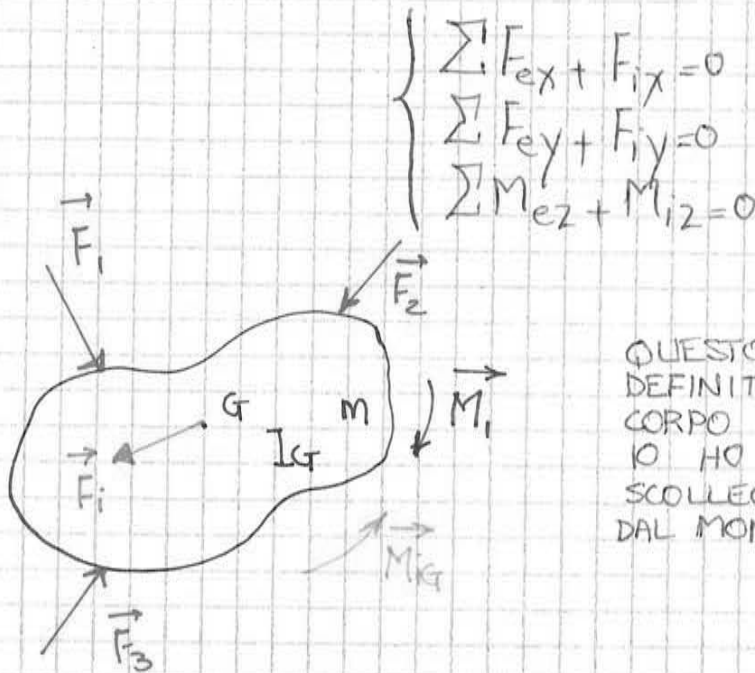 ΣFex + Fix = 0
ΣFey + Fiy = 0
ΣMez + Miz = 0
F₁
F₂
G
m
M₁
IG
Fi
MiG
F₃
QUESTO
DEFINIT
CORPO
IO HO
SCOLLEG
DAL MON